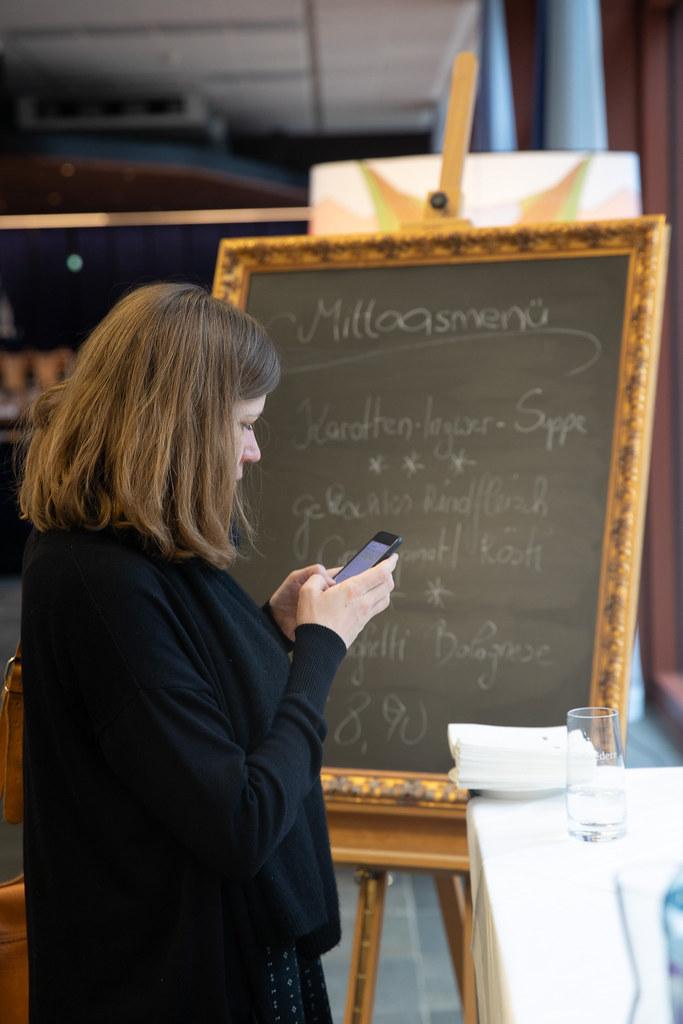 Mittagsmenü
Karotten-Ingwer-Suppe
* * *
gekochtes Rindfleisch
Rösti
*
Bolognese
8,90